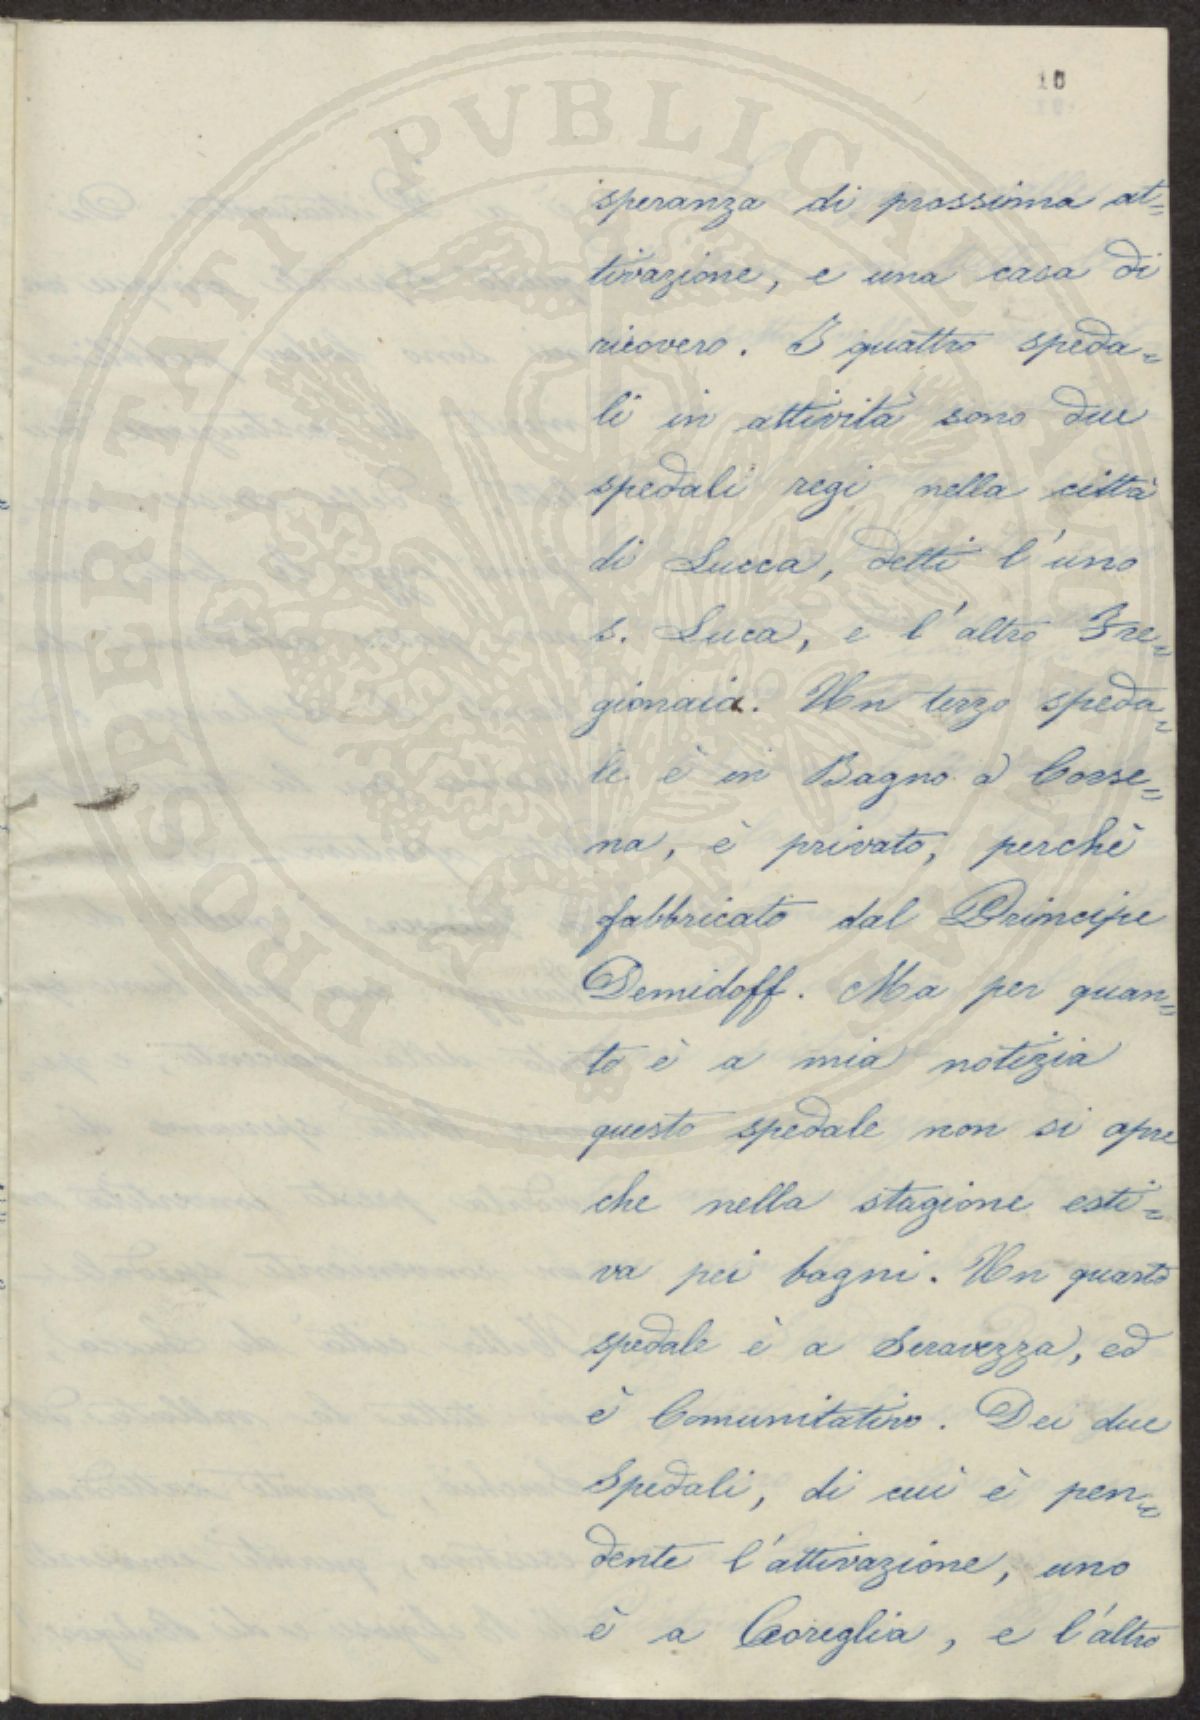 PROSPERITATI PVBLICAE
10
speranza di prossima at=
tivazione, e una casa di
ricovero. I quattro speda=
li in attività sono due
spedali regi nella città
di Lucca, detti l'uno
S. Luca, e l'altro Fre=
gionaia. Un terzo speda=
le è in Bagno a Corse=
na, è privato, perchè
fabbricato dal Principe
Demidoff. Ma per quan=
to è a mia notizia
questo spedale non si apre
che nella stagione esti=
va pei bagni. Un quarto
spedale è a Seravezza, ed
è Comunitativo. Dei due
Spedali, di cui è pen=
dente l'attivazione, uno
è a Coreglia, e l'altro